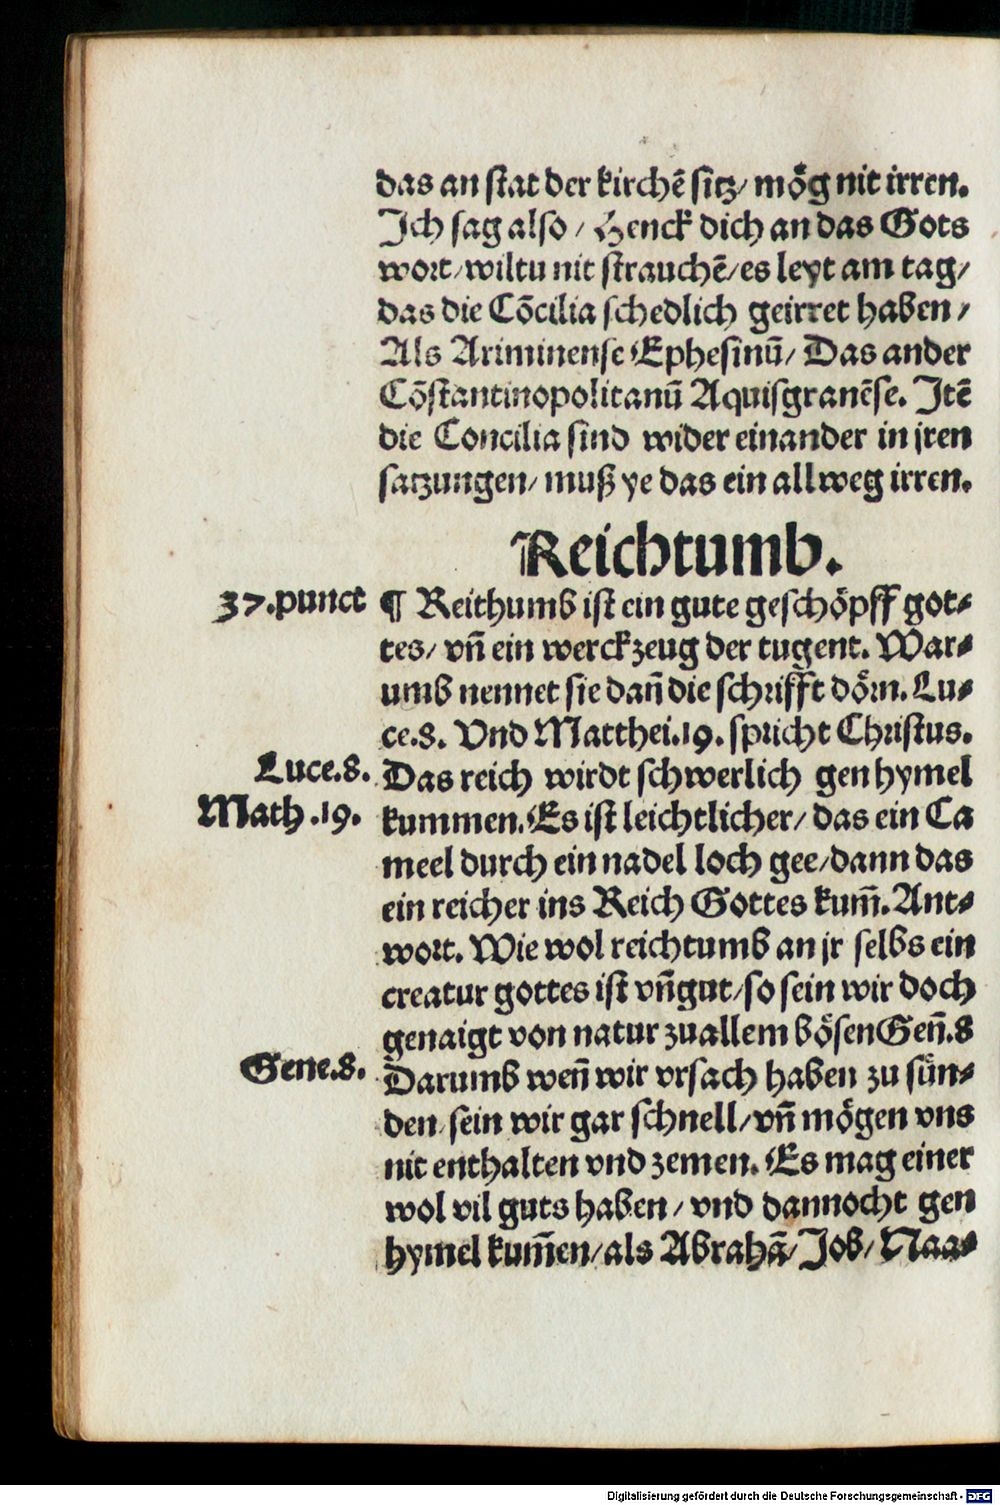 das an stat der kirchē sitz/ mög nit irren.
Ich sag also / Henck dich an das Gots
wort/wiltu nit strauchē/es leyt am tag/
das die Cōcilia schedlich geirret haben /
Als Ariminense Ephesinū/ Das ander
Cōstantinopolitanū Aquisgranēse. Itē
die Concilia sind wider einander in jren
satzungen/ muß ye das ein allweg irren.
Reichtumb.
37.punct ¶ Reithumb ist ein gute geschöpff got⸗
tes/ vn̄ ein werckzeug der tugent. War⸗
umb nennet sie dañ die schrifft dörn. Lu⸗
ce.8. Vnd Matthei.19. spricht Christus.
Luce.8. Das reich wirdt schwerlich gen hymel
Math.19. kummen. Es ist leichtlicher/ das ein Ca
meel durch ein nadel loch gee/dann das
ein reicher ins Reich Gottes kum̄. Ant⸗
wort. Wie wol reichtumb an jr selbs ein
creatur gottes ist vn̄gut/so sein wir doch
genaigt von natur zuallem bösen Gen̄.8
Gene.8. Darumb wen̄ wir vrsach haben zu sün⸗
den sein wir gar schnell/vn̄ mögen vns
nit enthalten vnd zemen. Es mag einer
wol vil guts haben / vnd dannocht gen
hymel kum̄en/als Abrahā/ Job/ Naa⸗
Digitalisierung gefördert durch die Deutsche Forschungsgemeinschaft - DFG